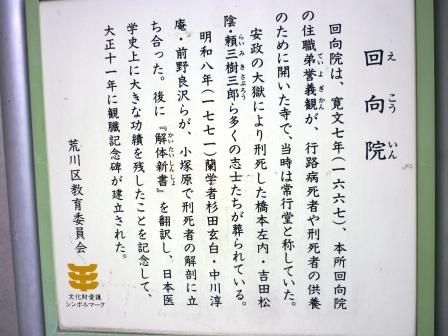 回向院
えこういん
回向院は、寛文七年(一六六七)、本所回向院
の住職弟誉義観が、行路病死者や刑死者の供養
ていよぎかん
のために開いた寺で、当時は常行堂と称していた。
安政の大獄により刑死した橋本左内・吉田松
陰・頼三樹三郎ら多くの志士たちが葬られている。
らいみきさぶろう
明和八年(一七七一)蘭学者杉田玄白・中川淳
庵・前野良沢らが、小塚原で刑死者の解剖に立
ち合った。後に『解体新書』を翻訳し、日本医
かいたいしんしょ
学史上に大きな功績を残したことを記念して、
大正十一年に観臓記念碑が建立された。
荒川区教育委員会
文化財愛護
シンボルマーク